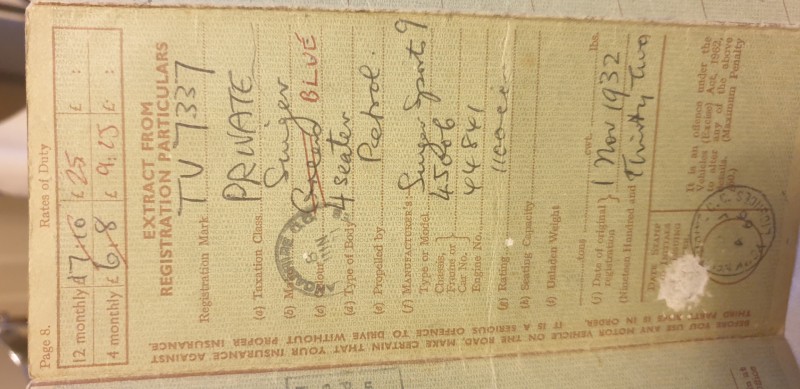 Page 8. Rates of Duty
12 monthly £ 7.10 £ 25 £ :
4 monthly £ 6.8 £ 9:25 £ :
EXTRACT FROM
REGISTRATION PARTICULARS
Registration Mark TV 7337
(a) Taxation Class PRIVATE
(b) Singer
(c) BLUE
(d) Type of Body 4 seater
(e) Propelled by Petrol.
(f) MANUFACTURER'S:
Type or Model Singer Sports 9
Chassis, Frame or Car No. 45006
Engine No. 44841
(g) Rating 1100cc
(h) Seating Capacity
(i) Unladen Weight
tons cwt. lbs.
(j) Date of original registration 1 Nov 1932
(Nineteen Hundred and Thirty Two
It is an offence under the
(Excise) Act, 1962,
to alter any of the above
(Maximum Penalty
DATE STAMP
BEFORE YOU USE ANY MOTOR VEHICLE ON THE ROAD, MAKE CERTAIN THAT YOUR INSURANCE AGAINST
THIRD PARTY RISKS IS IN ORDER. IT IS A SERIOUS OFFENCE TO DRIVE WITHOUT PROPER INSURANCE.